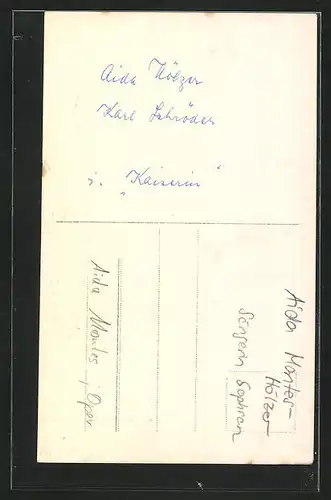 Aida Hölzer
Karl Schröder
i. "Kaiserin"
Aida Montes, Oper
Aida Montes-
Hölzer
Sängerin Sopran